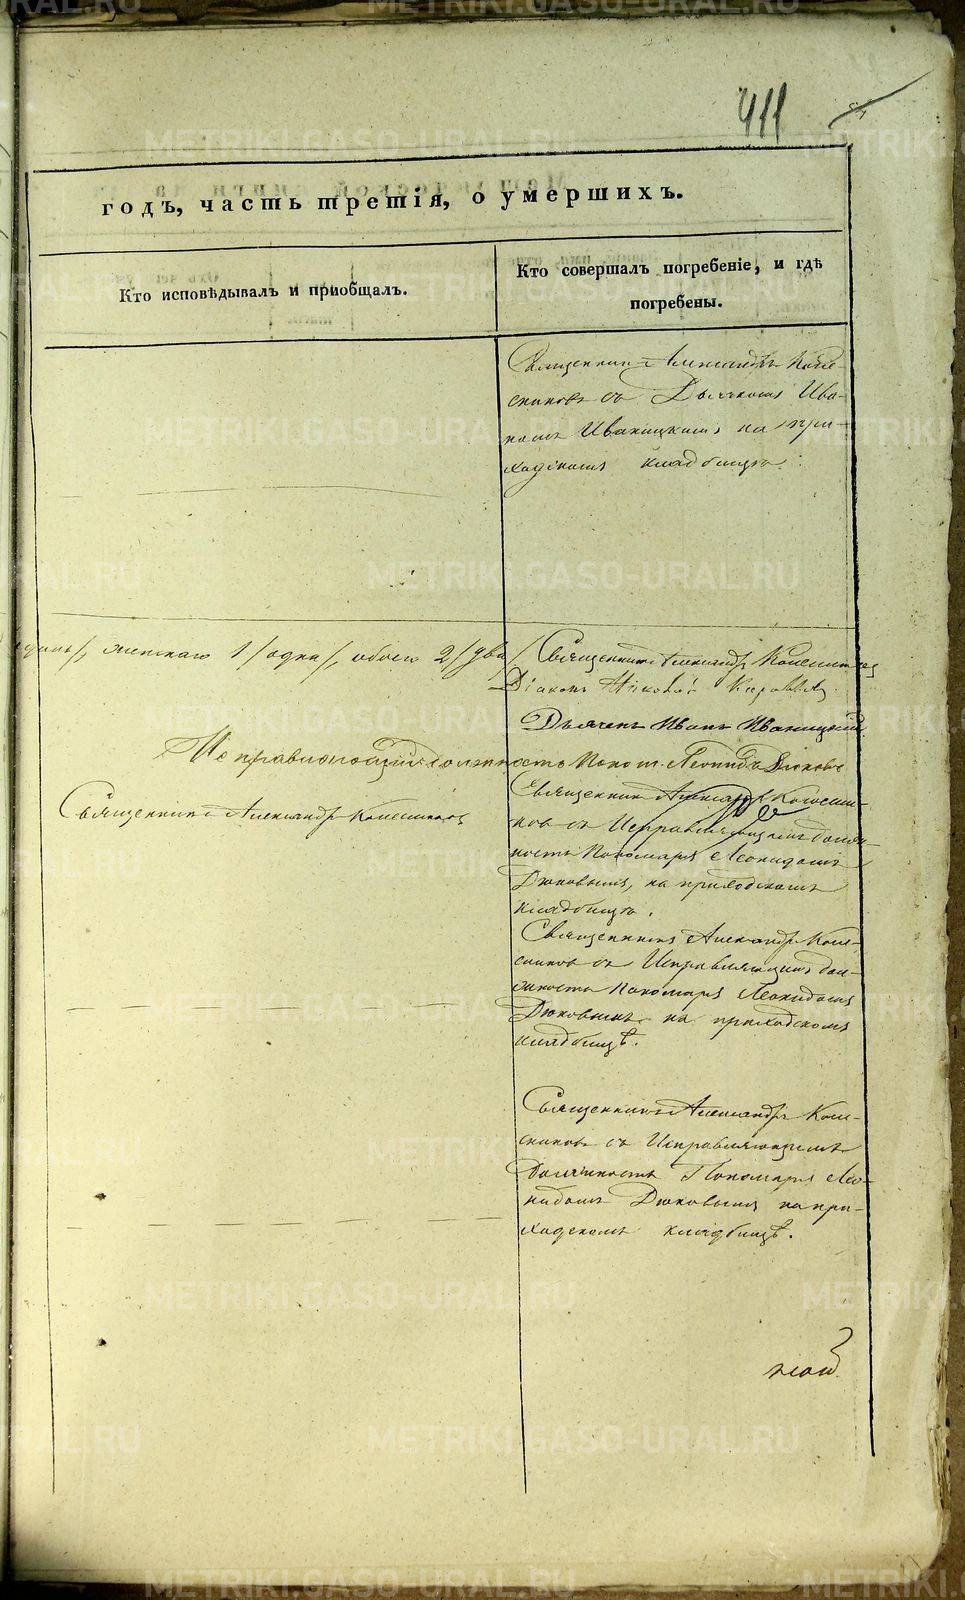 METRIKI.GASO-URAL.RU
411
годъ, часть третія, о умершихъ.
Кто исповѣдывалъ и пріобщалъ.
Кто совершалъ погребеніе, и гдѣ
погребены.
Священникъ Александръ Коле-
сниковъ съ Дьячкомъ Ива-
номъ Иваницкимъ на при-
ходскомъ кладбищѣ.
женскаго 1/одна/, обоего 2/два/
Священникъ Александръ Колесниковъ
Діаконъ
Дьячекъ Иванъ Иваницкій
Исправляющій должность Поном. Леонидъ Дюковъ
Священникъ Александръ Колесниковъ
Священникъ Александръ Колесни-
ковъ съ Исправляющимъ долж-
ность Пономаря Леонидомъ
Дюковымъ, на приходскомъ
кладбищѣ.
Священникъ Александръ Коле-
сниковъ съ Исправляющимъ дол-
жность Пономаря Леонидомъ
Дюковымъ на приходскомъ
кладбищѣ.
Священникъ Александръ Коле-
сниковъ съ Исправляющимъ
должность Пономаря Лео-
нидомъ Дюковымъ на при-
ходскомъ кладбищѣ.